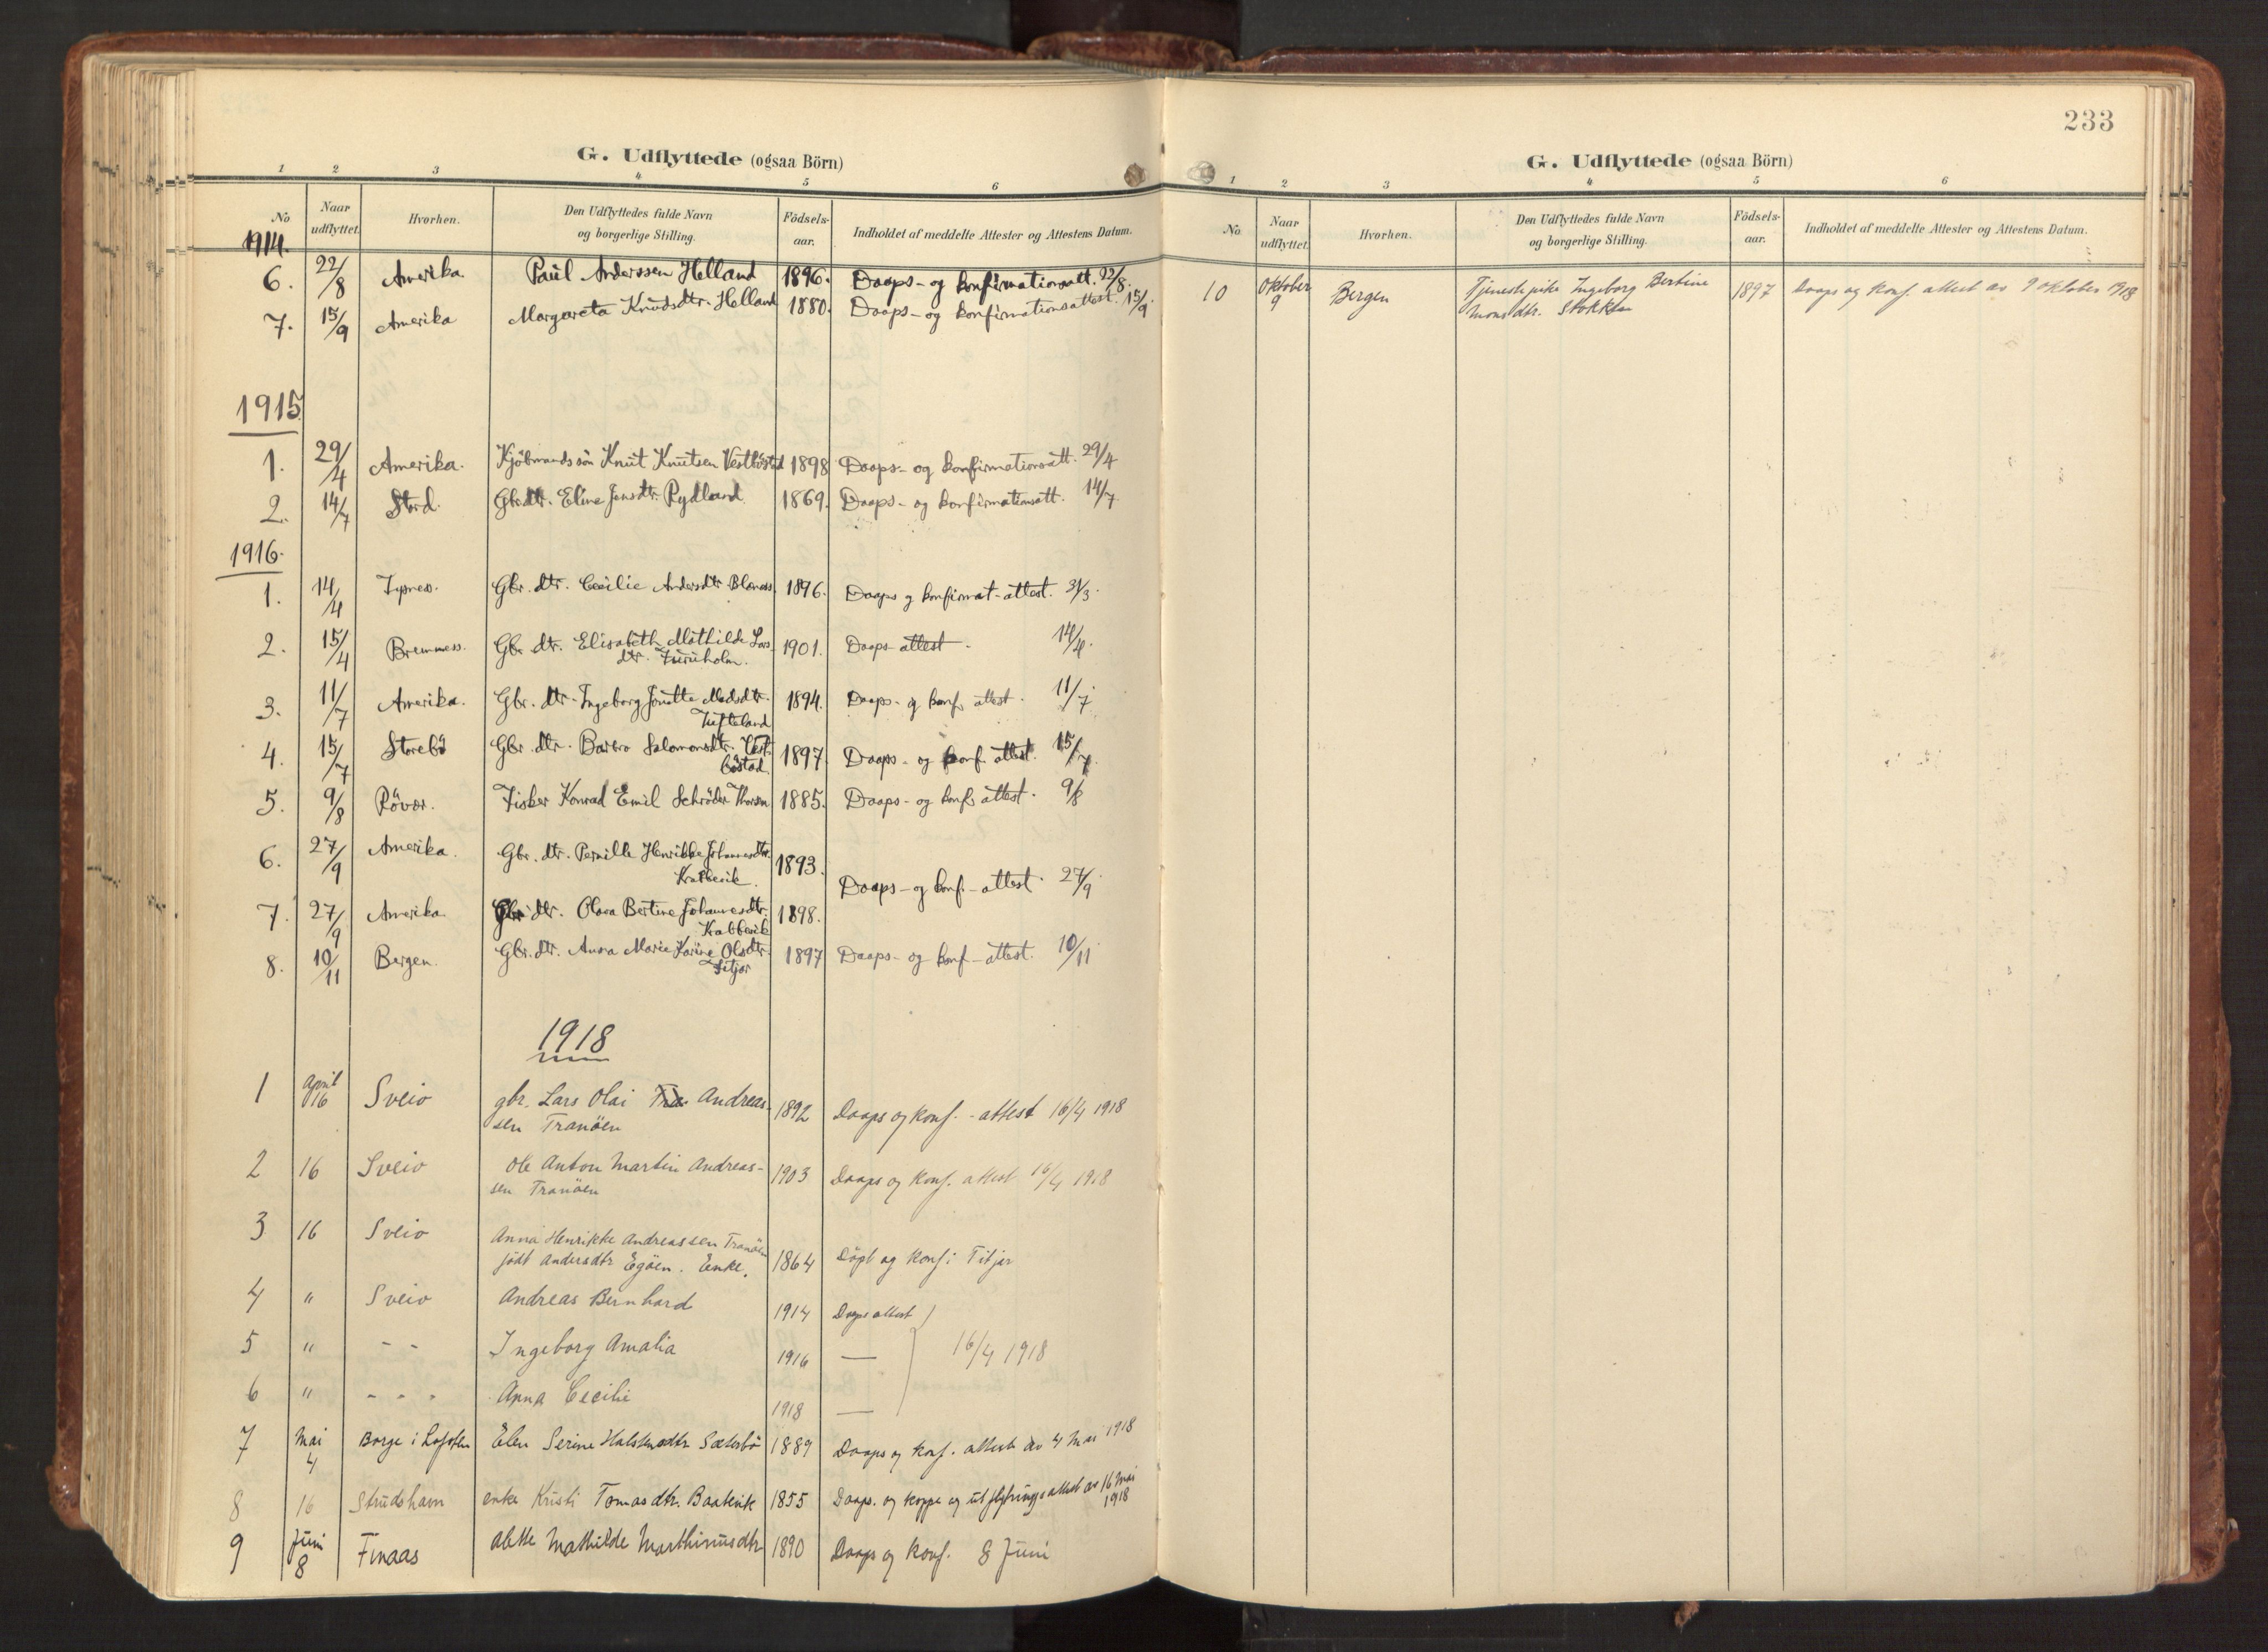 G. Udflyttede (ogsaa Börn)
1 2 3 4 5 6
No Naar udflyttet. Hvorhen. Den Udflyttedes fulde Navn og borgerlige Stilling. Födsels-aar. Indholdet af meddelte Attester og Attestens Datum.
1914.
6. 22/8 Amerika. Paul Anderssen Helland 1896. Daaps- og konfirmationsatt. 22/8.
7. 15/9 Amerika Margareta Knudsdtr. Helland 1880. Daaps- og konfirmationsattest. 15/9.
1915
1. 29/4 Amerika. Kjöbmandssön Knut Knutsen Vestböstad 1898 Daaps- og konfirmationsatt. 29/4
2. 14/7 Stord. Gbr. dtr. Eline Jensdtr. Rydland 1869. Daaps- og konfirmationsatt. 14/7
1916.
1. 14/4 Gbr. dtr. Cecilie Andersdtr. 1896. Daaps g konfirmat-attest. 31/3.
2. 15/4 Bremnes. Gbr. dtr. Elisabeth Mathilde Lars-
dtr. Furuholm. 1901. Daaps attest. 14/4.
3. 11/7 Amerika. Gbr. dtr. Ingeborg Jonette Madsdtr.
Tufteland 1894. Daaps- og konf. attest. 11/7.
4. 15/7 Storebö Gbr. dtr. Barbro Salomonsdtr. Vest-
böstad. 1897 Daaps- og konf. attest. 15/7.
5. 9/8 Rövær. Fisker Konrad Emil Schröder 1885. Daaps- og konf. attest. 9/8
6. 27/9 Amerika. Gbr. dtr. Pernille Henrikke Johannesdtr.
Krabbevik. 1893.
Daaps- og konf.- attest. 27/9.
7. 27/9 Amerika Gbr. dtr. Olava Bertine Johannesdtr.
Krabbevik 1898.
8. 10/11 Bergen. Gbr. dtr. Anna Marie Karine Olsdtr.
Fitjar 1897 Daaps- og konf-attest. 10/11
1918
1 April 16 Sveio gbr. Lars Olai Andreas-
sen Tranöen 1892 Daaps og konf.- attest 16/4 1918
2 16 Sveio Ole Anton Martin Andreas-
sen Tranöen 1903 Daaps og konf. attest 16/4 1918
3 16 Sveio Anna Henrikke Andreassen Tranöen
født Andersdtr Egöen. Enke. 1864 Döpt og konf i Fitjar
4 " Sveio Andreas Bernhard 1914 Daaps attest
5 " - - Ingeborg Amalia 1916 — 16/4 1918
6 " - - - Anna Cecilie 1918 —
7 Mai 4 Borge i Lofoten Elen Serine Halstensdtr. Sæterbö 1889 Daaps og konf. attest av 4 Mai 1918
8 16 Strudshavn enke Kristi Tomasdtr. Baatevik 1855 Daaps. og koppe og utflytnings attest av 16 Mai 1918
9 Juni 8 Finaas Alette Mathilde Marthinusdtr 1890 Daaps og konf. 8 Juni
233
G. Udflyttede (ogsaa Börn)
1 2 3 4 5 6
No Naar udflyttet. Hvorhen. Den Udflyttedes fulde Navn og borgerlige Stilling. Födsels-aar. Indholdet af meddelte Attester og Attestens Datum.
10 Oktober 9 Bergen Tjenestepike Ingeborg Bertine
Monsdtr. Stokken 1897 Daaps og konf. attest av 9 Oktober 1918